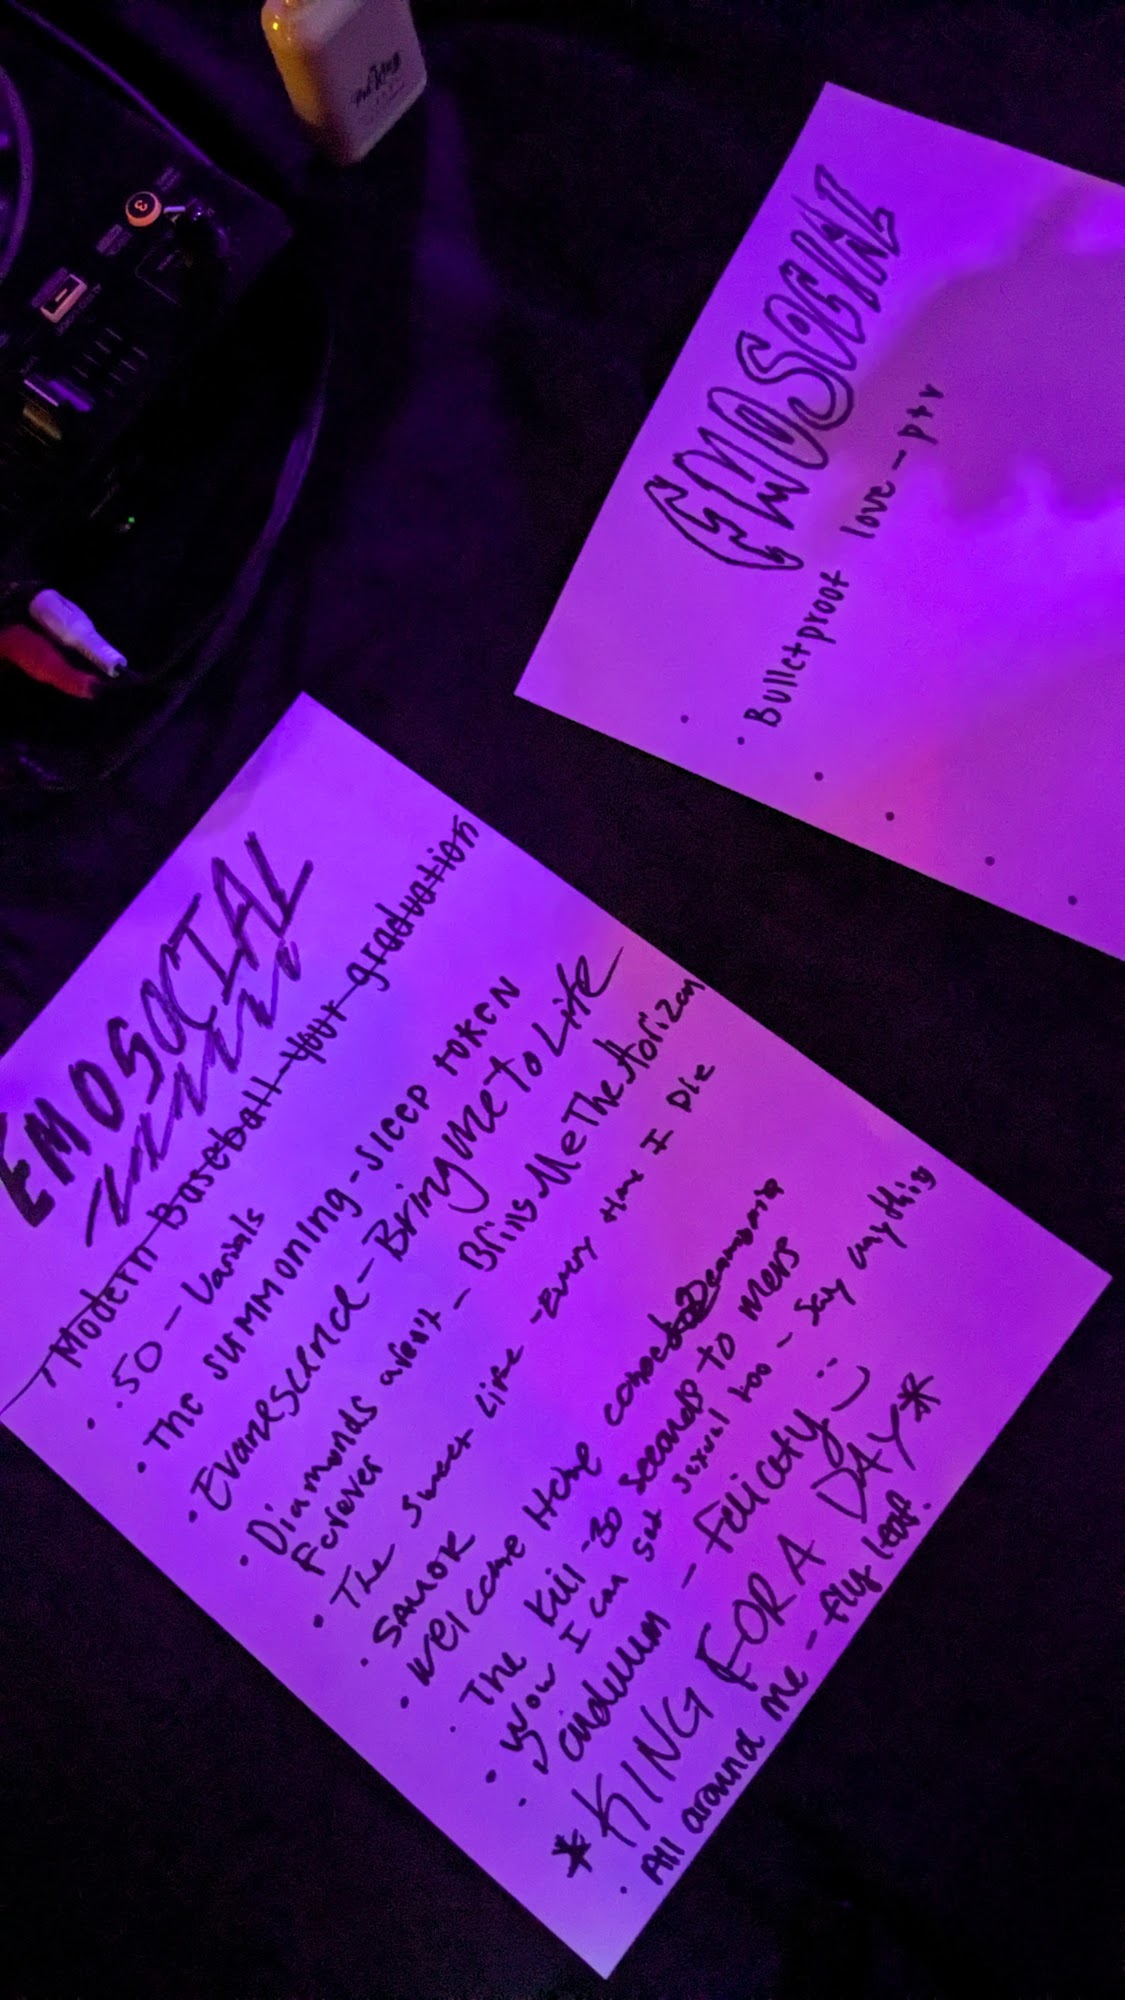 EMOSOCIAL
Modern Baseball-Your graduation
.50 - Varials
• The SUMMONING - Sleep TOKEN
• Evanescence - Bring me to Life
• Diamonds aren't - Bring Me The Horizon
Forever
• The Sweet Life - Every time I Die
• SAMOR
• Welcome Home
• The Kill - 30 Seconds to Mars
• Wow I can get sexual too - Say anything
• - felicity :)
*KING FOR A DAY*
• All around me - fly leaf.
EMOSOCIAL
•
• Bulletproof love - ptv
•
•
•
•
3